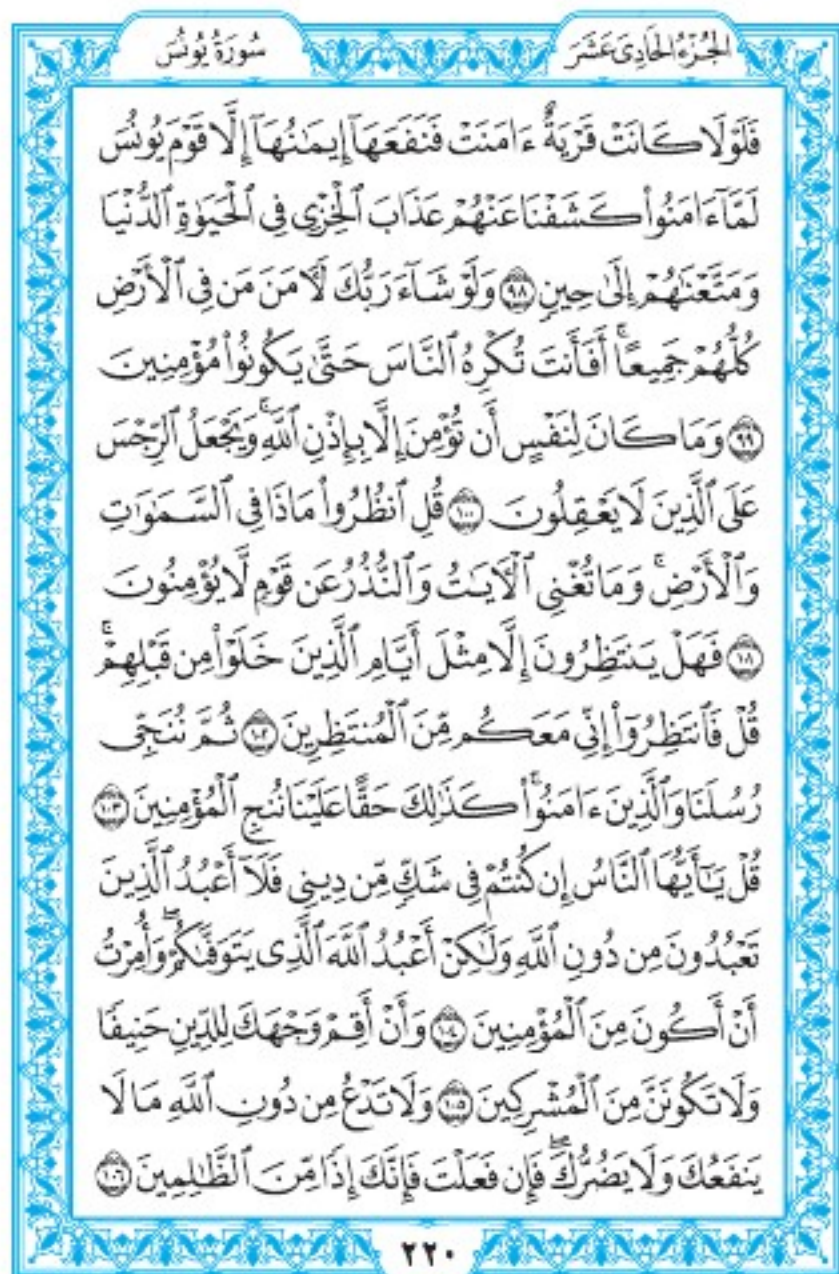 الجُزْءُ الحَادِي عَشَرَ
سُورَةُ يُونُسَ
فَلَوْلَا كَانَتْ قَرْيَةٌ ءَامَنَتْ فَنَفَعَهَآ إِيمَٰنُهَآ إِلَّا قَوْمَ يُونُسَ
لَمَّآ ءَامَنُوا۟ كَشَفْنَا عَنْهُمْ عَذَابَ ٱلْخِزْىِ فِى ٱلْحَيَوٰةِ ٱلدُّنْيَا
وَمَتَّعْنَٰهُمْ إِلَىٰ حِينٍ ٩٨ وَلَوْ شَآءَ رَبُّكَ لَءَامَنَ مَن فِى ٱلْأَرْضِ
كُلُّهُمْ جَمِيعًا ۚ أَفَأَنتَ تُكْرِهُ ٱلنَّاسَ حَتَّىٰ يَكُونُوا۟ مُؤْمِنِينَ
٩٩ وَمَا كَانَ لِنَفْسٍ أَن تُؤْمِنَ إِلَّا بِإِذْنِ ٱللَّهِ ۚ وَيَجْعَلُ ٱلرِّجْسَ
عَلَى ٱلَّذِينَ لَا يَعْقِلُونَ ١٠٠ قُلِ ٱنظُرُوا۟ مَاذَا فِى ٱلسَّمَٰوَٰتِ
وَٱلْأَرْضِ ۚ وَمَا تُغْنِى ٱلْءَايَٰتُ وَٱلنُّذُرُ عَن قَوْمٍ لَّا يُؤْمِنُونَ
١٠١ فَهَلْ يَنتَظِرُونَ إِلَّا مِثْلَ أَيَّامِ ٱلَّذِينَ خَلَوْا۟ مِن قَبْلِهِمْ ۚ
قُلْ فَٱنتَظِرُوٓا۟ إِنِّى مَعَكُم مِّنَ ٱلْمُنتَظِرِينَ ١٠٢ ثُمَّ نُنَجِّى
رُسُلَنَا وَٱلَّذِينَ ءَامَنُوا۟ ۚ كَذَٰلِكَ حَقًّا عَلَيْنَا نُنجِ ٱلْمُؤْمِنِينَ ١٠٣
قُلْ يَٰٓأَيُّهَا ٱلنَّاسُ إِن كُنتُمْ فِى شَكٍّ مِّن دِينِى فَلَآ أَعْبُدُ ٱلَّذِينَ
تَعْبُدُونَ مِن دُونِ ٱللَّهِ وَلَٰكِنْ أَعْبُدُ ٱللَّهَ ٱلَّذِى يَتَوَفَّىٰكُمْ ۖ وَأُمِرْتُ
أَنْ أَكُونَ مِنَ ٱلْمُؤْمِنِينَ ١٠٤ وَأَنْ أَقِمْ وَجْهَكَ لِلدِّينِ حَنِيفًا
وَلَا تَكُونَنَّ مِنَ ٱلْمُشْرِكِينَ ١٠٥ وَلَا تَدْعُ مِن دُونِ ٱللَّهِ مَا لَا
يَنفَعُكَ وَلَا يَضُرُّكَ ۖ فَإِن فَعَلْتَ فَإِنَّكَ إِذًا مِّنَ ٱلظَّٰلِمِينَ ١٠٦
٢٢٠